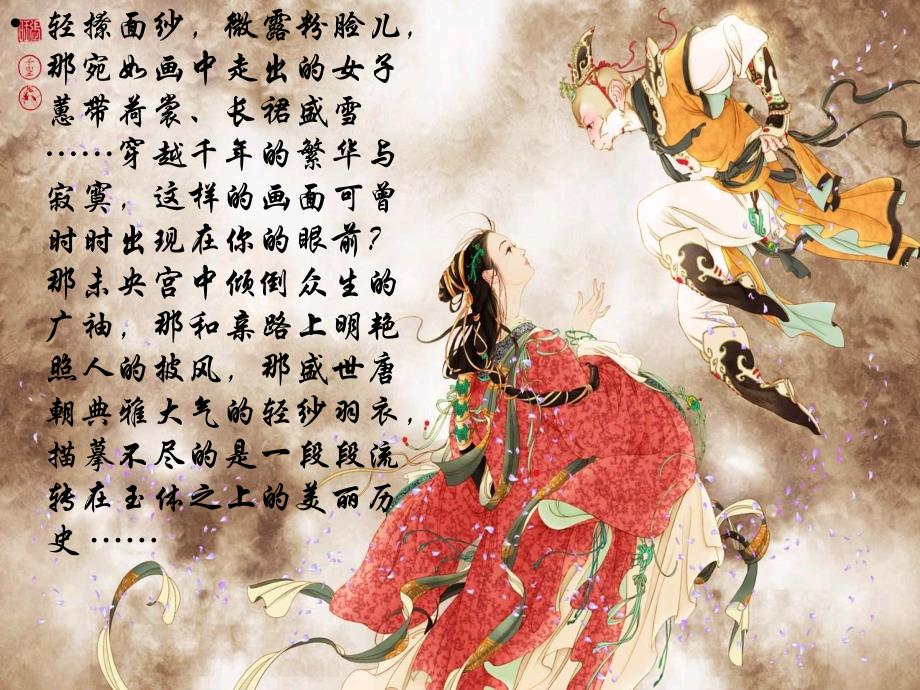 轻撩面纱，微露粉脸儿，
那宛如画中走出的女子
蕙带荷裳、长裙盛雪
……穿越千年的繁华与
寂寞，这样的画面可曾
时时出现在你的眼前？
那未央宫中倾倒众生的
广袖，那和亲路上明艳
照人的披风，那盛世唐
朝典雅大气的轻纱羽衣，
描摹不尽的是一段段流
转在玉体之上的美丽历
史……